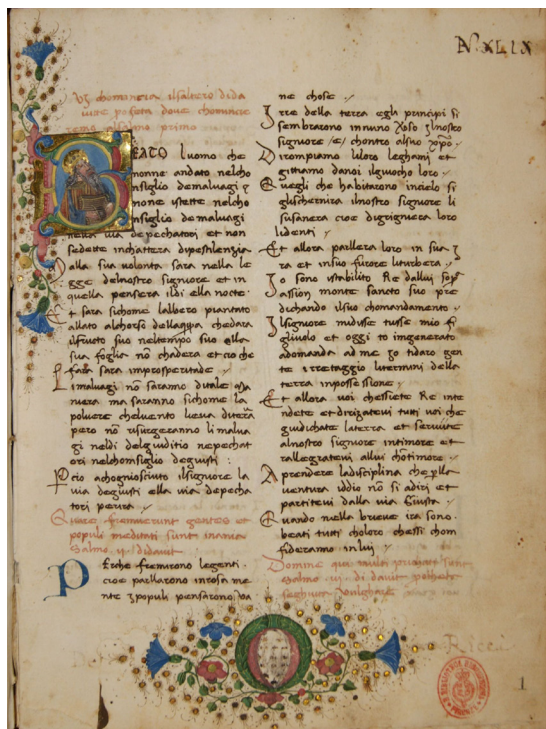 N. XLIX
Qui chomincia ilsaltero di da
uitte profeta doue chomincie
remo salmo primo
BEATO luomo che
nonne andato nelcho
nsiglio demaluagi ꝫ
none istette nelcho
nsiglio de maluagi
nella uia de pechatori et non
sedette inchattera dipestilenzia
alla sua volonta sara nella le
gge delnostro signore et in
quella pensera ildi ella nocte
Et sara sichome lalbero piantato
allato alchorso dellaqua chedara
ilfructo suo neltempo suo ella
sua foglia nō chadera et cio che
fara sara improsperitade
I maluagi nō saranno ditale ma
nera ma saranno sichome la
poluere cheluento lieua diterra
pero nō risurgeranno li malua
gi neldi delgiuditio nepechat
ori nelchonsiglio degiusti :
Pcio achognosciuto ilsignore la
via degiusti ella via depecha
tori perira
Quare fremuerunt gentes et
populi meditati sunt inania
Salmo .ij. didauit
Perche fremirono legenti
cioe parlarono inrosa me
nte ꝫ populi pensarono ua
ne chose
Irre della terra egli principi si
sembrarono innuno choso ꝫlnostro
signore /e/ chontro alsuo xpo
Dirompiamo liloro leghami et
gittiamo danoi ilguocho loro
Quegli che habitarono incielo si
glischernira ilnostro signore li
susanera cioe digrignera loro
lidenti
Et allora parllera loro in sua ꝫ
ra et insuo furore liturbera
Io sono istabilito Re dallui sop
assion monte sancto suo pre
dichando ilsuo chomandamento
Ilsignore midisse tusse mio fi
gliuolo et oggi to imgenerato
adomanda ad me ꝫo tidaro gen
te i rretaggio literminj della
terra inpossessione
Et allora voi chessiete Re inte
ndete et dirizateui tutti voi che
giudichate laterra et seruite
alnostro signore intimore et
rallegrateui allui chōtimore
Aprendere ladisciplina che plla
uentura iddio nō si adiri et
partiteui dalla via giusta
Quando nella brieue ira sono
beati tutti choloro chessi chon
fideranno inlui
Domine qui multiplicati sunt
Salmo .iij. di dauit
seghuita uulghare
Ricci
1